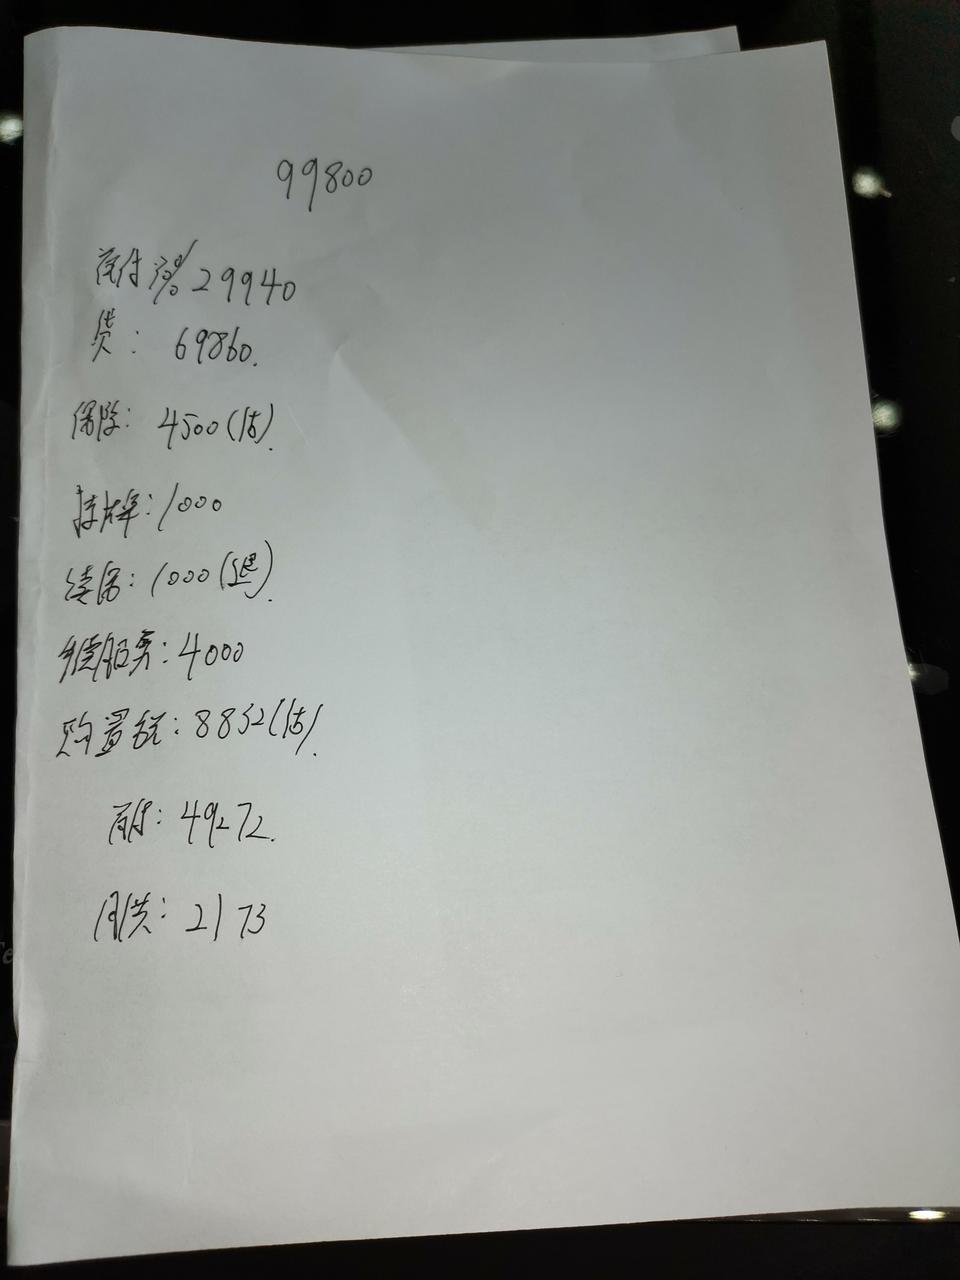 99800
首付30% 29940
贷：69860.
保险：4500(估).
挂牌：1000
续保：1000(退).
手续服务：4000
购置税：8832(估).
首付：49272.
月供：2173